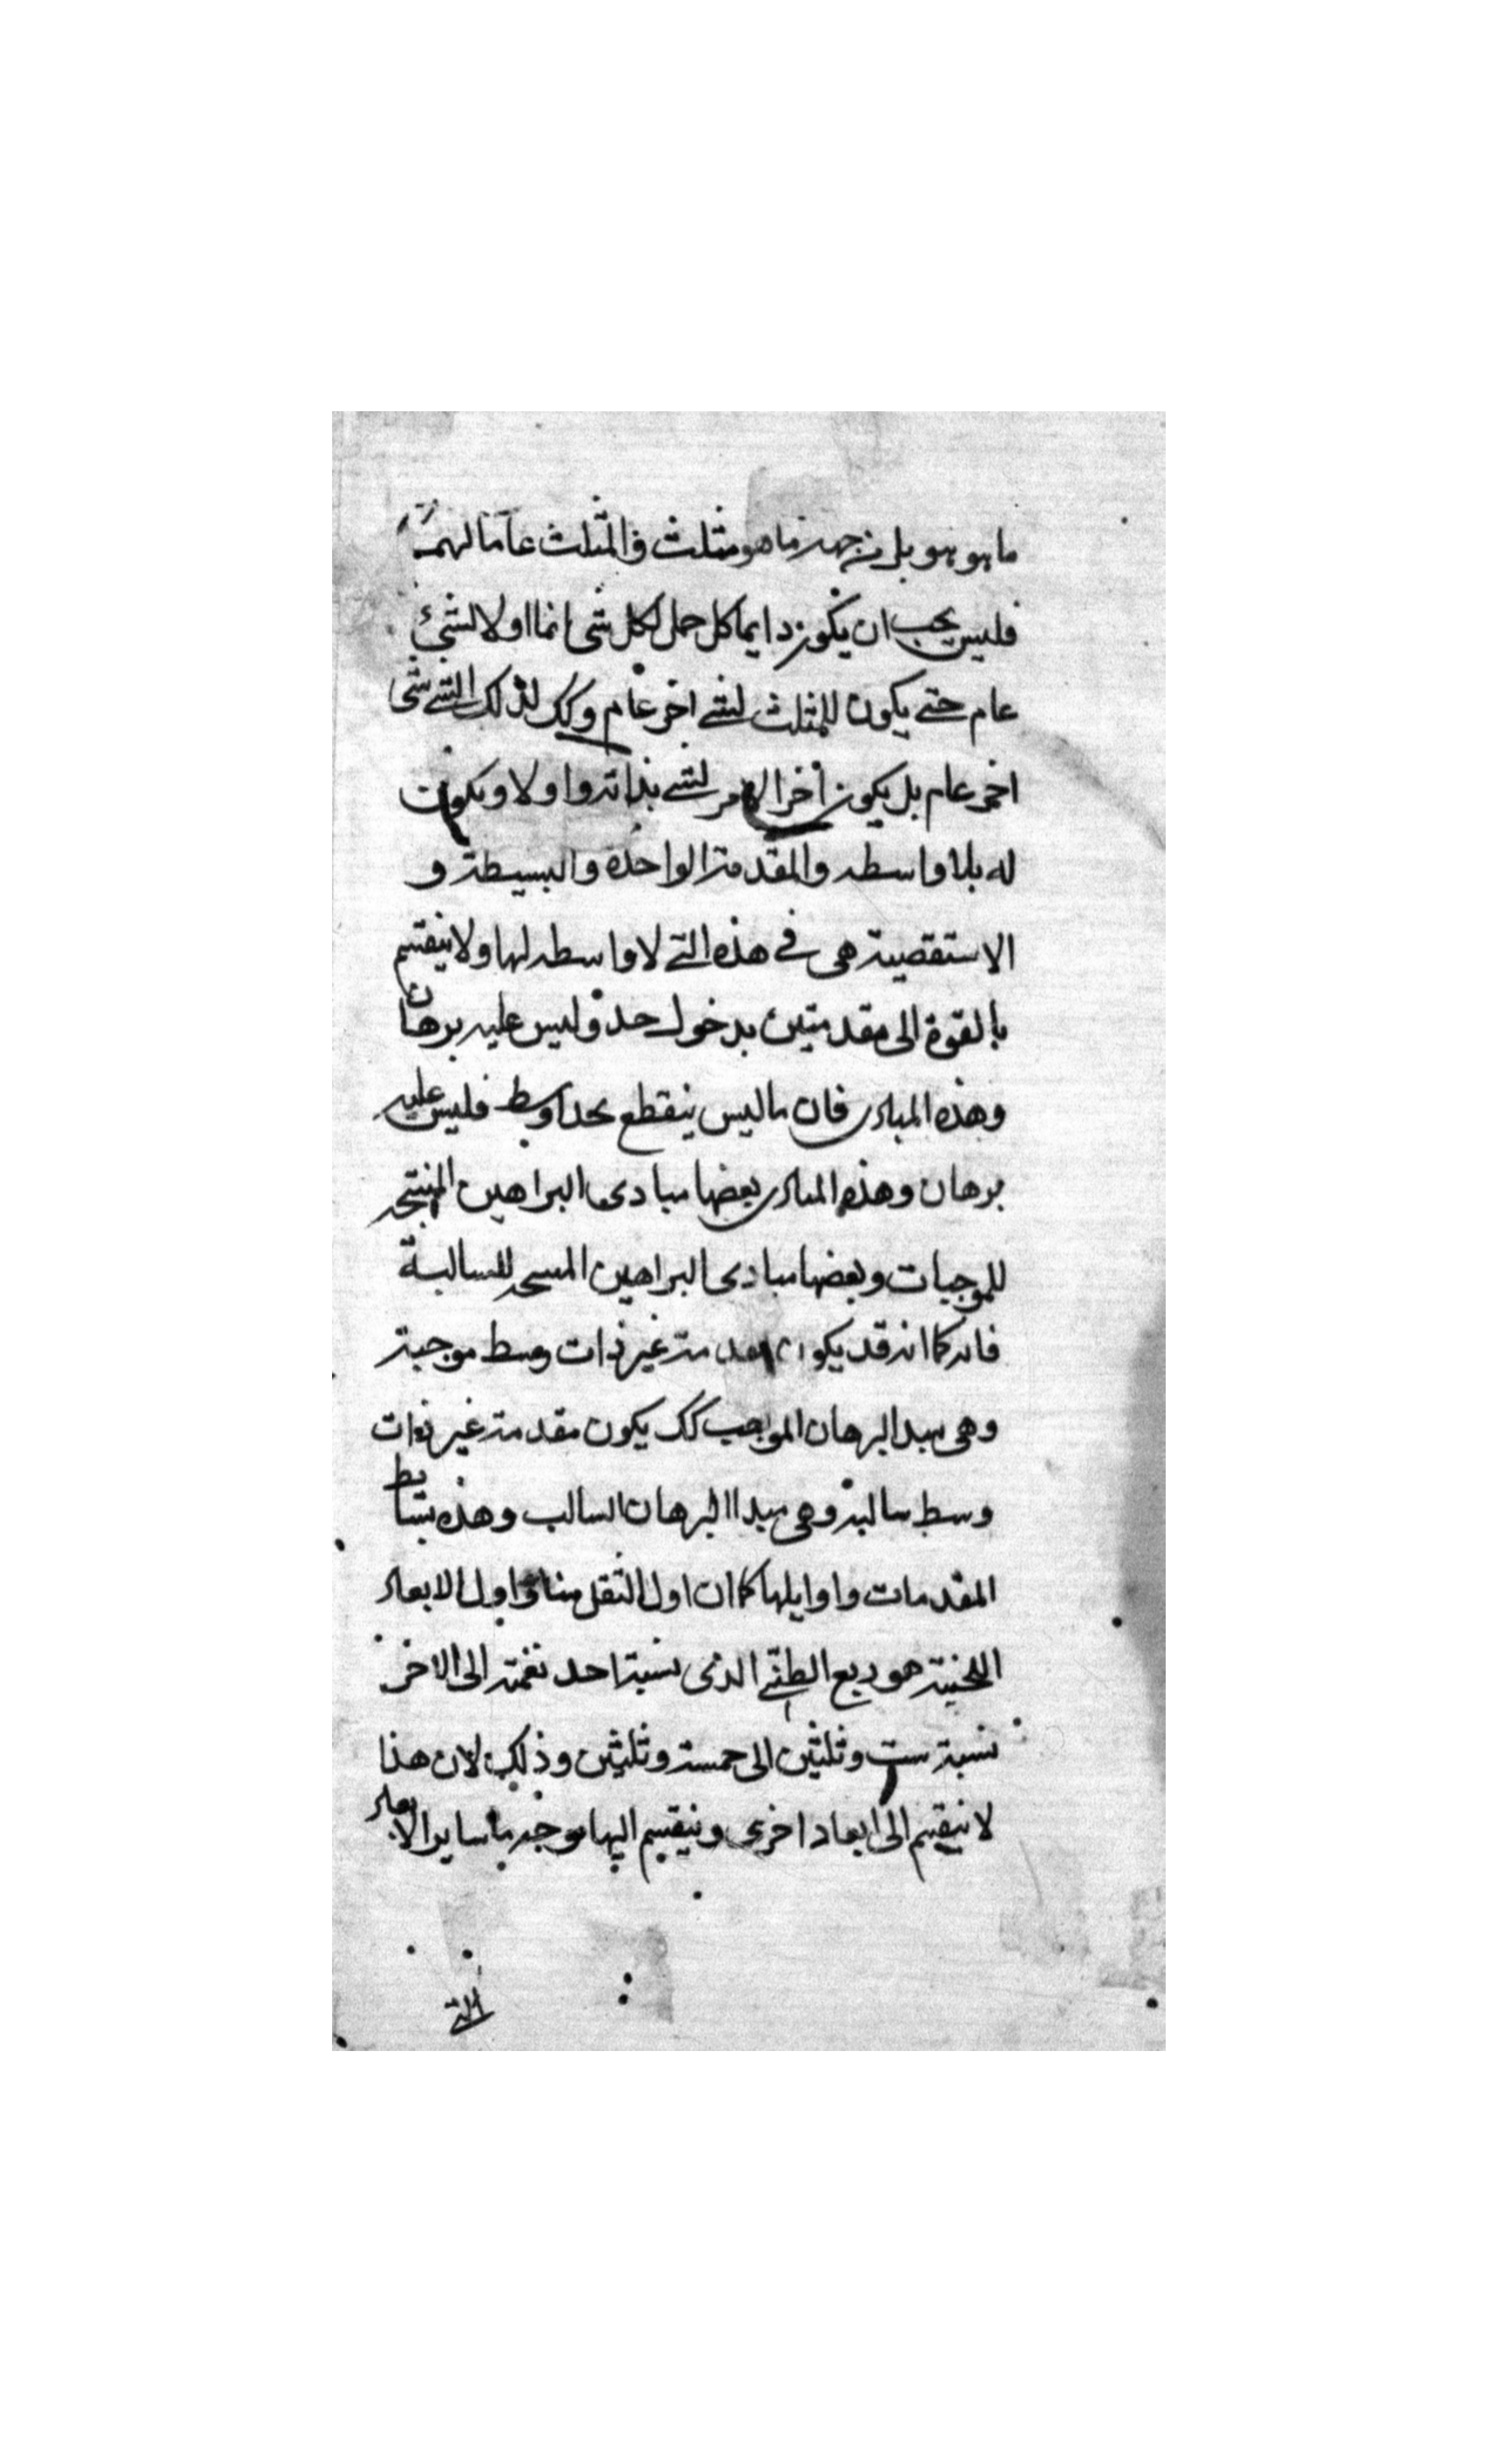 ما هو هو بل من جهة ما هو مثلث فالمثلث عاما لهما
فليس يجب ان يكون دايما كل حمل لكل شى انما اولا لشئ
عام حتى يكون للمثلث لشى اخر عام وكك لذلك الشى شى
اخر عام بل يكون اخر الامر لشى بذاته واولا ويكون
له بلا واسطه والمقدمة الواحدة والبسيطة و
الاستقصية هى فى هذه التى لا واسطه لها ولا ينقسم
بالقوة الى مقدمتين بدخول حد وليس عليه برهان
وهذه المبادى فان ما ليس ينقطع بحد اوسط فليس عليه
برهان وهذه المبادى بعضها مبادى البراهين المنتجه
للموجبات وبعضها مبادى البراهين المنتجه للسالبة
فانه كما انه قد يكون مقدمة غير ذات وسط موجبة
وهى مبدا البرهان الموجب كك يكون مقدمة غير ذات
وسط سالبة وهى مبدا البرهان السالب وهذه بسايط
المقدمات واوايلها كما ان اول الثقل منا واول الابعاد
اللحنية هو ربع الطنى الذى نسبة احد نغمته الى الاخر
نسبة ست وثلثين الى خمسة وثلثين وذلك لان هذا
لا ينقسم الى ابعاد اخرى وينقسم اليها بوجه ما ساير الابعاد
التى